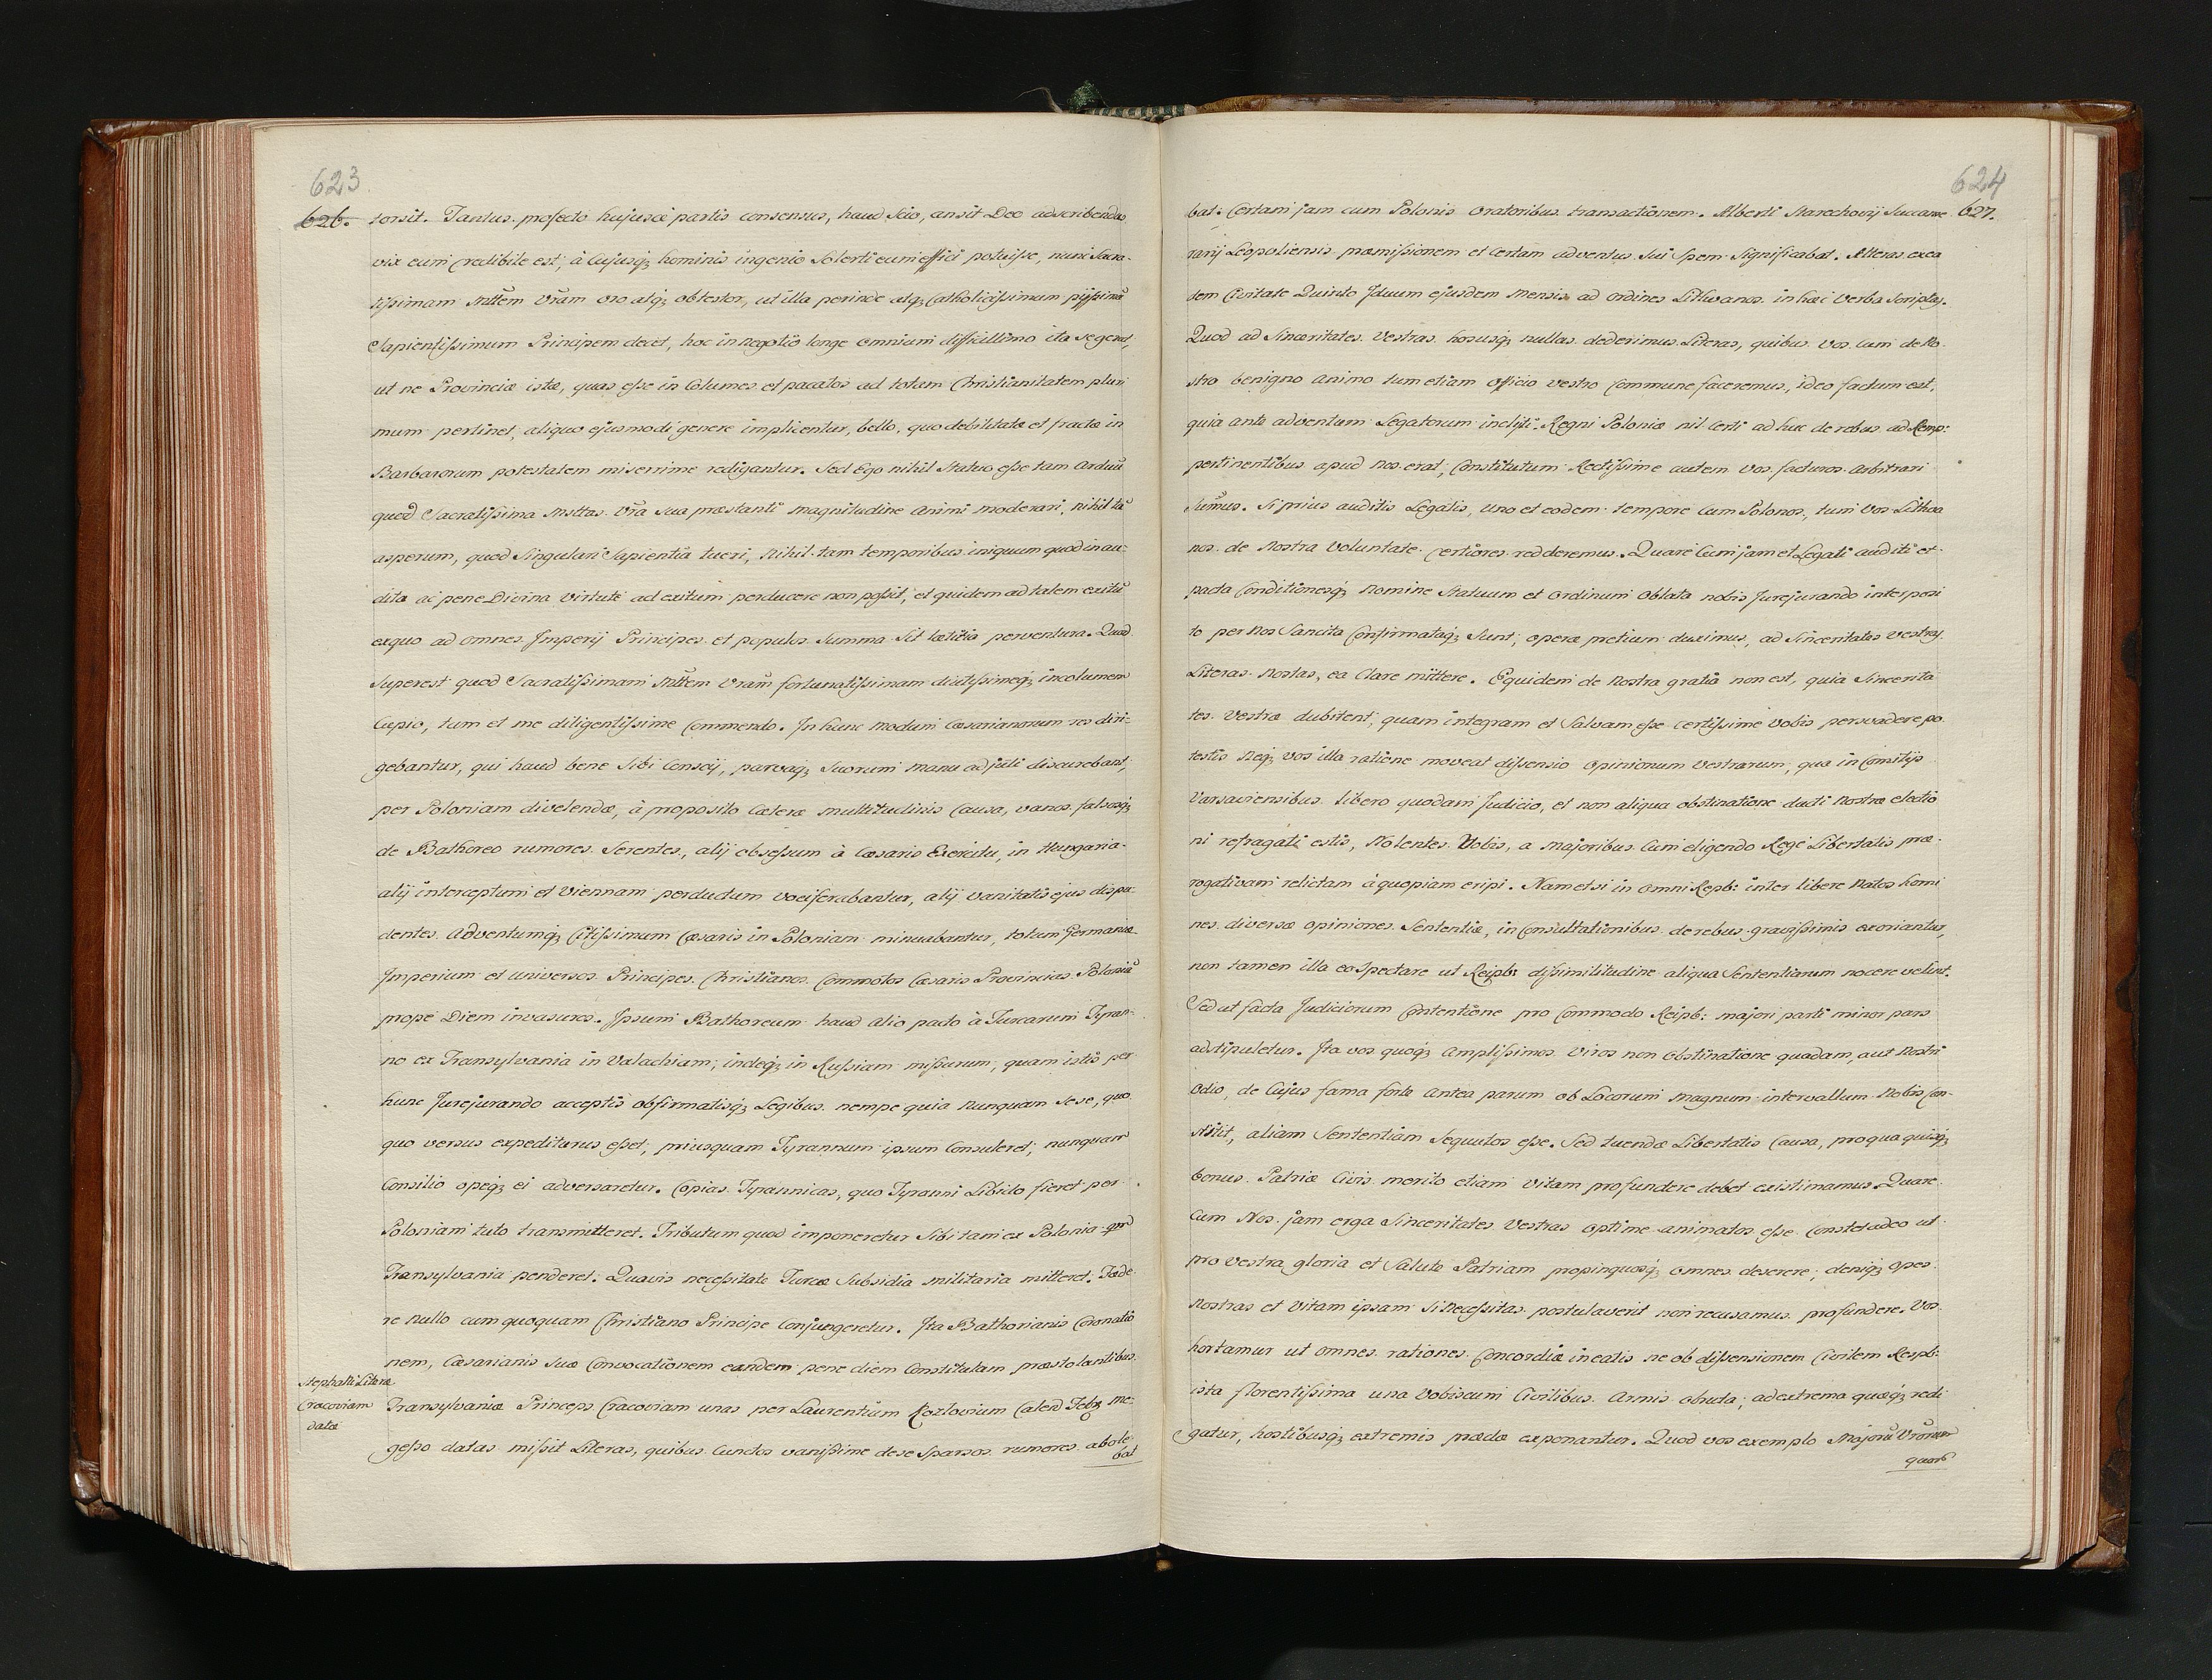 623.
626.
torsit. Tantus profecto hujusce partis consensus, haud Scio, an sit Deo adscribendus
vix eum credibile est, à Cujusq; hominis ingenio Solerti eum effici potuisse, nunc Sacra-
tissimam Mttem Vram oro atq; obtestor, ut illa perinde atq; Catholicissimum pyssimũ
Sapientissimum Principem decet, hoc in negotio longe omnium difficillimo ita se gerat,
ut ne Provinciæ istæ, quas esse in Columes et pacatas ad totam Christianitatem pluri
mum pertinet, aliquo ejusmodi genere implicentur, bello, quo debilitatæ et fractæ in
Barbarorum potestatem miserrime redigantur. Sed Ego nihil Statuo esse tam arduũ
quod Sacratissima Mttas Vra sua præstanti magnitudine animi moderari, nihil tã
asperum, quod Singulari Sapientia tueri, nihil tam temporibus iniquum quod inau-
dita ac pene Divina virtute ad exitum perducere non possit, et quidem ad talem exitũ
exquo ad omnes Imperij Principes et populos Summa Sit lætitia perventura. Quod
Superest quod Sacratissimam Mttem Vram fortunatissimam diutissimeq; incolumem
Cupio, tum et me diligentissime Commendo. In hunc modum Cæsarianorum res diri-
gebantur, qui haud bene Sibi Conscij, parvaq; Suorum manu adjuti discurebant,
per Poloniam divelendæ, à proposito Cæteræ multitudinis Causa, vanos falsosq;
de Bathoreo rumores Serentes, alij obsessum à Cæsaris Exercitu, in Hungaria-
alij interceptum et Viennam perductum vociferabantur, alij vanitatis ejus dispu-
dentes Adventumq; Citissimum Cæsaris in Poloniam minuabantur, totum Germaniæ
Imperium et universos Principes Christianos Commotos Cæsaris Provincias Poloniæ
prope Diem invasuros. Ipsum Bathoreum haud alio pacto à Turcarum Tyran-
no ex Transylvania in Valachiam, indeq; in Russiam missurum, quam istis per
hunc Jurejurando acceptis obfirmatisq; Legibus nempe quia nunquam Sese, quo
quo versus expediturus esset, priusquam Tyrannum ipsum Consuleret, nunquam
Consilio opeq; ei adversaretur. Copias Tyrannicas, quo Tyranni Libido fieret per
Poloniam tuto transmitteret. Tributum quod imponeretur Sibi tam ex Polonia
Transylvania penderet. Quavis necessitate Turcæ Subsidia militaria mitteret. Fæde
re nullo cum quoquam Christiano Principe Conjungeretur. Ita Bathorianis Coronatio
nem, Cæsarianis Suæ Convocationem eandem pene diem Constitutam præstolantibus
Stephani Literæ
Cracoviam
datæ
Transylvaniæ Princeps Cracoviam unas per Laurentium Kozlovium Calend Febr me-
geso datas missit Literas, quibus Cunctos vanissime de se Sparsos rumores abole-
bat
624
627.
bat. Certam jam cum Polonis Oratoribus transactionem. Alberti Starechovij Succame
rarij Leopoliensis præmissionem et Certam adventus Sui Spem Significabat. Alteras exea
dem Civitate Quinto Iduum ejusdem Mensis ad ordines Lithvanos in hæc Verba Scriptas.
Quod ad Sinceritates Vestras hosusq; nullas dederimus Literas, quibus Vos cum de No
stro benigno animo tum etiam officio vestro Commune faceremus, ideo factum est,
quia ante adventum Legatorum inclyti Regni Poloniæ nil Certi ad huc de rebus ad Remp:
pertinentibus apud nos erat, Constitutum Rectissime autem Vos facturos arbitrari
Sumus. Si prius auditis Legatis, uno et eodem tempore Cum Polonos, tum Vos Lithva
nos de Nostra Voluntate certiores redderemus. Quare Cum jam et Legati auditi et
pacta Conditionesq; Nomine Statuum et Ordinum Oblata nobis Jurejurando interposi
to per Nos Sancita Confirmataq; Sunt, operæ pretium duximus, ad Sinceritates vestras
Literas Nostas, ea Clare mittere. Equidem de Nostra gratia non est, quia Sincerita
tes Vestræ dubitent, quam integram et Salvam esse Certissime Vobis persvadere po
testis Neq; vos illa ratione moveat dissensio opinionum Vestrarum, qua in Comitijs
Varsaviensibus libero quodam Judicio, et non aliqua obstinatione ducti Nostræ electio
ni refragati estis, Nolentes Vobis, a majoribus Cum eligendo Rege Libertatis præ-
rogativam relictam à quopiam eripi. Nam etsi in omni Repb: inter libere Natos homi
nes diversæ opiniones Sententiæ, in Consultationibus de rebus gravissimis exoriantur,
non tamen illa eo Spectare ut Reipb: dissimilitudine aliqua Sententiarum nocere velint.
Sed ut facta Judiciorum Contentione pro Commodo Reipb: majori parti minor pars
adstipuletur. Ita vos quoq; Amplissimos Viros non Obstinatione quadam, aut Nostri
Odio, de Cujus fama forte antea parum ob Locorum magnum intervallum Nobis Con-
stitit, aliam Sententiam Sequutos esse. Sed tuendæ Libertatis Causa, pro qua quisq;
bonus Patriæ Civis merito etiam Vitam profundere debet existimamus. Quare
Cum Nos jam erga Sinceritates Vestras optime animatos esse Constet adeo ut
pro Vestra gloria et Salute Patriam propinquosq; omnes deserere; deniq; opes
Nostras et Vitam ipsam Si Necessitas postulaverit non recusamus profundere. Vos
hortamur ut omnes rationes Concordiæ ineatis ne ob dissensionem Civilem Respb:
ista florentissima una Vobiscum Civilibus Armis obruta; ad extrema quæq; redi
gatur, hostibusq; extremis præda exponantur. Quod vos exemplo Majorũ Vrorum
quorũ